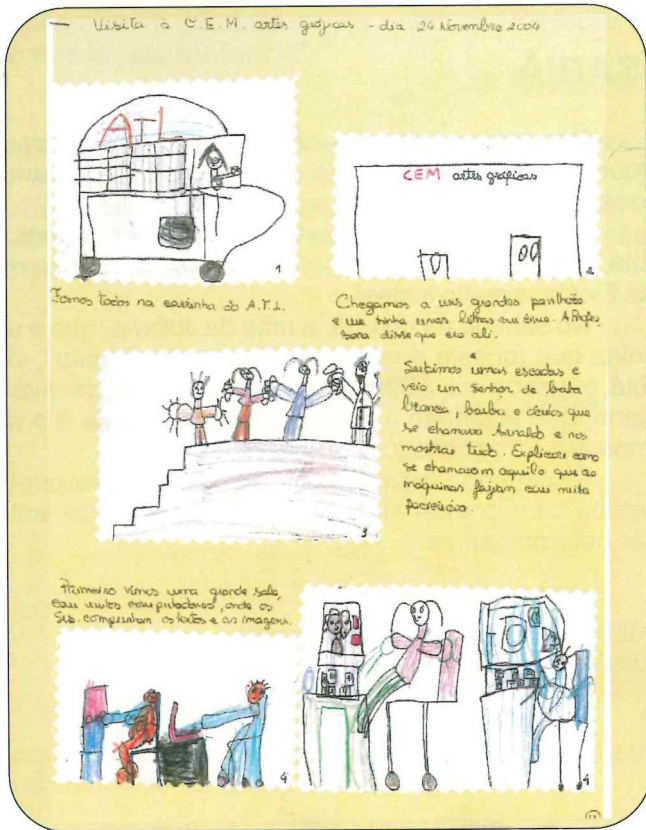 Visita à C.E.M. artes gráficas - dia 24 Novembro 2004
ATL
1
CEM artes gráficas
2
Fomos todos na carrinha do A.T.L.
Chegamos a uns grandes pavilhões
e um tinha umas letras em cima. A Profes
sora disse que era ali.
3
Subimos umas escadas e
veio um senhor de bata
branca, barba e óculos que
se chamava Arnaldo e nos
mostrou tudo. Explicou como
se chamavam aquilo que as
máquinas faziam com muita
paciência.
Primeiro vimos uma grande sala,
com muitos computadores, onde os
Srs. compunham os textos e as imagens.
4
4